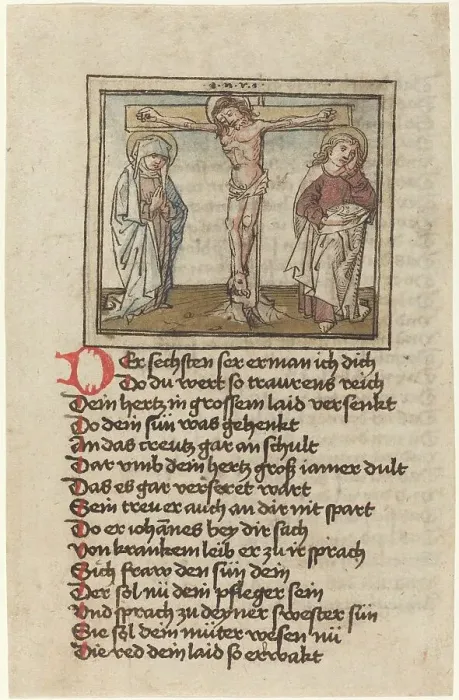 i · n · r · i ·
Der sechsten ser erman ich dich
Do du wert so traurens reich
Dein hertz in grossem laid versenkt
Do dein sun was gehenkt
An das creutz gar an schult
Dar vmb dein hertz groß iamer dult
Das es gar verseret wart
Sein treu er auch an dir nit spart
Do er iohañes bey dir sach
Von krankem leib er zu ir sprach
Sich fraw den sün dein
Der sol nü dein pfleger sein
Vnd sprach zu deyner swester sün
Sie sol dein müter wesen nü
Die red dein laid so erwakt